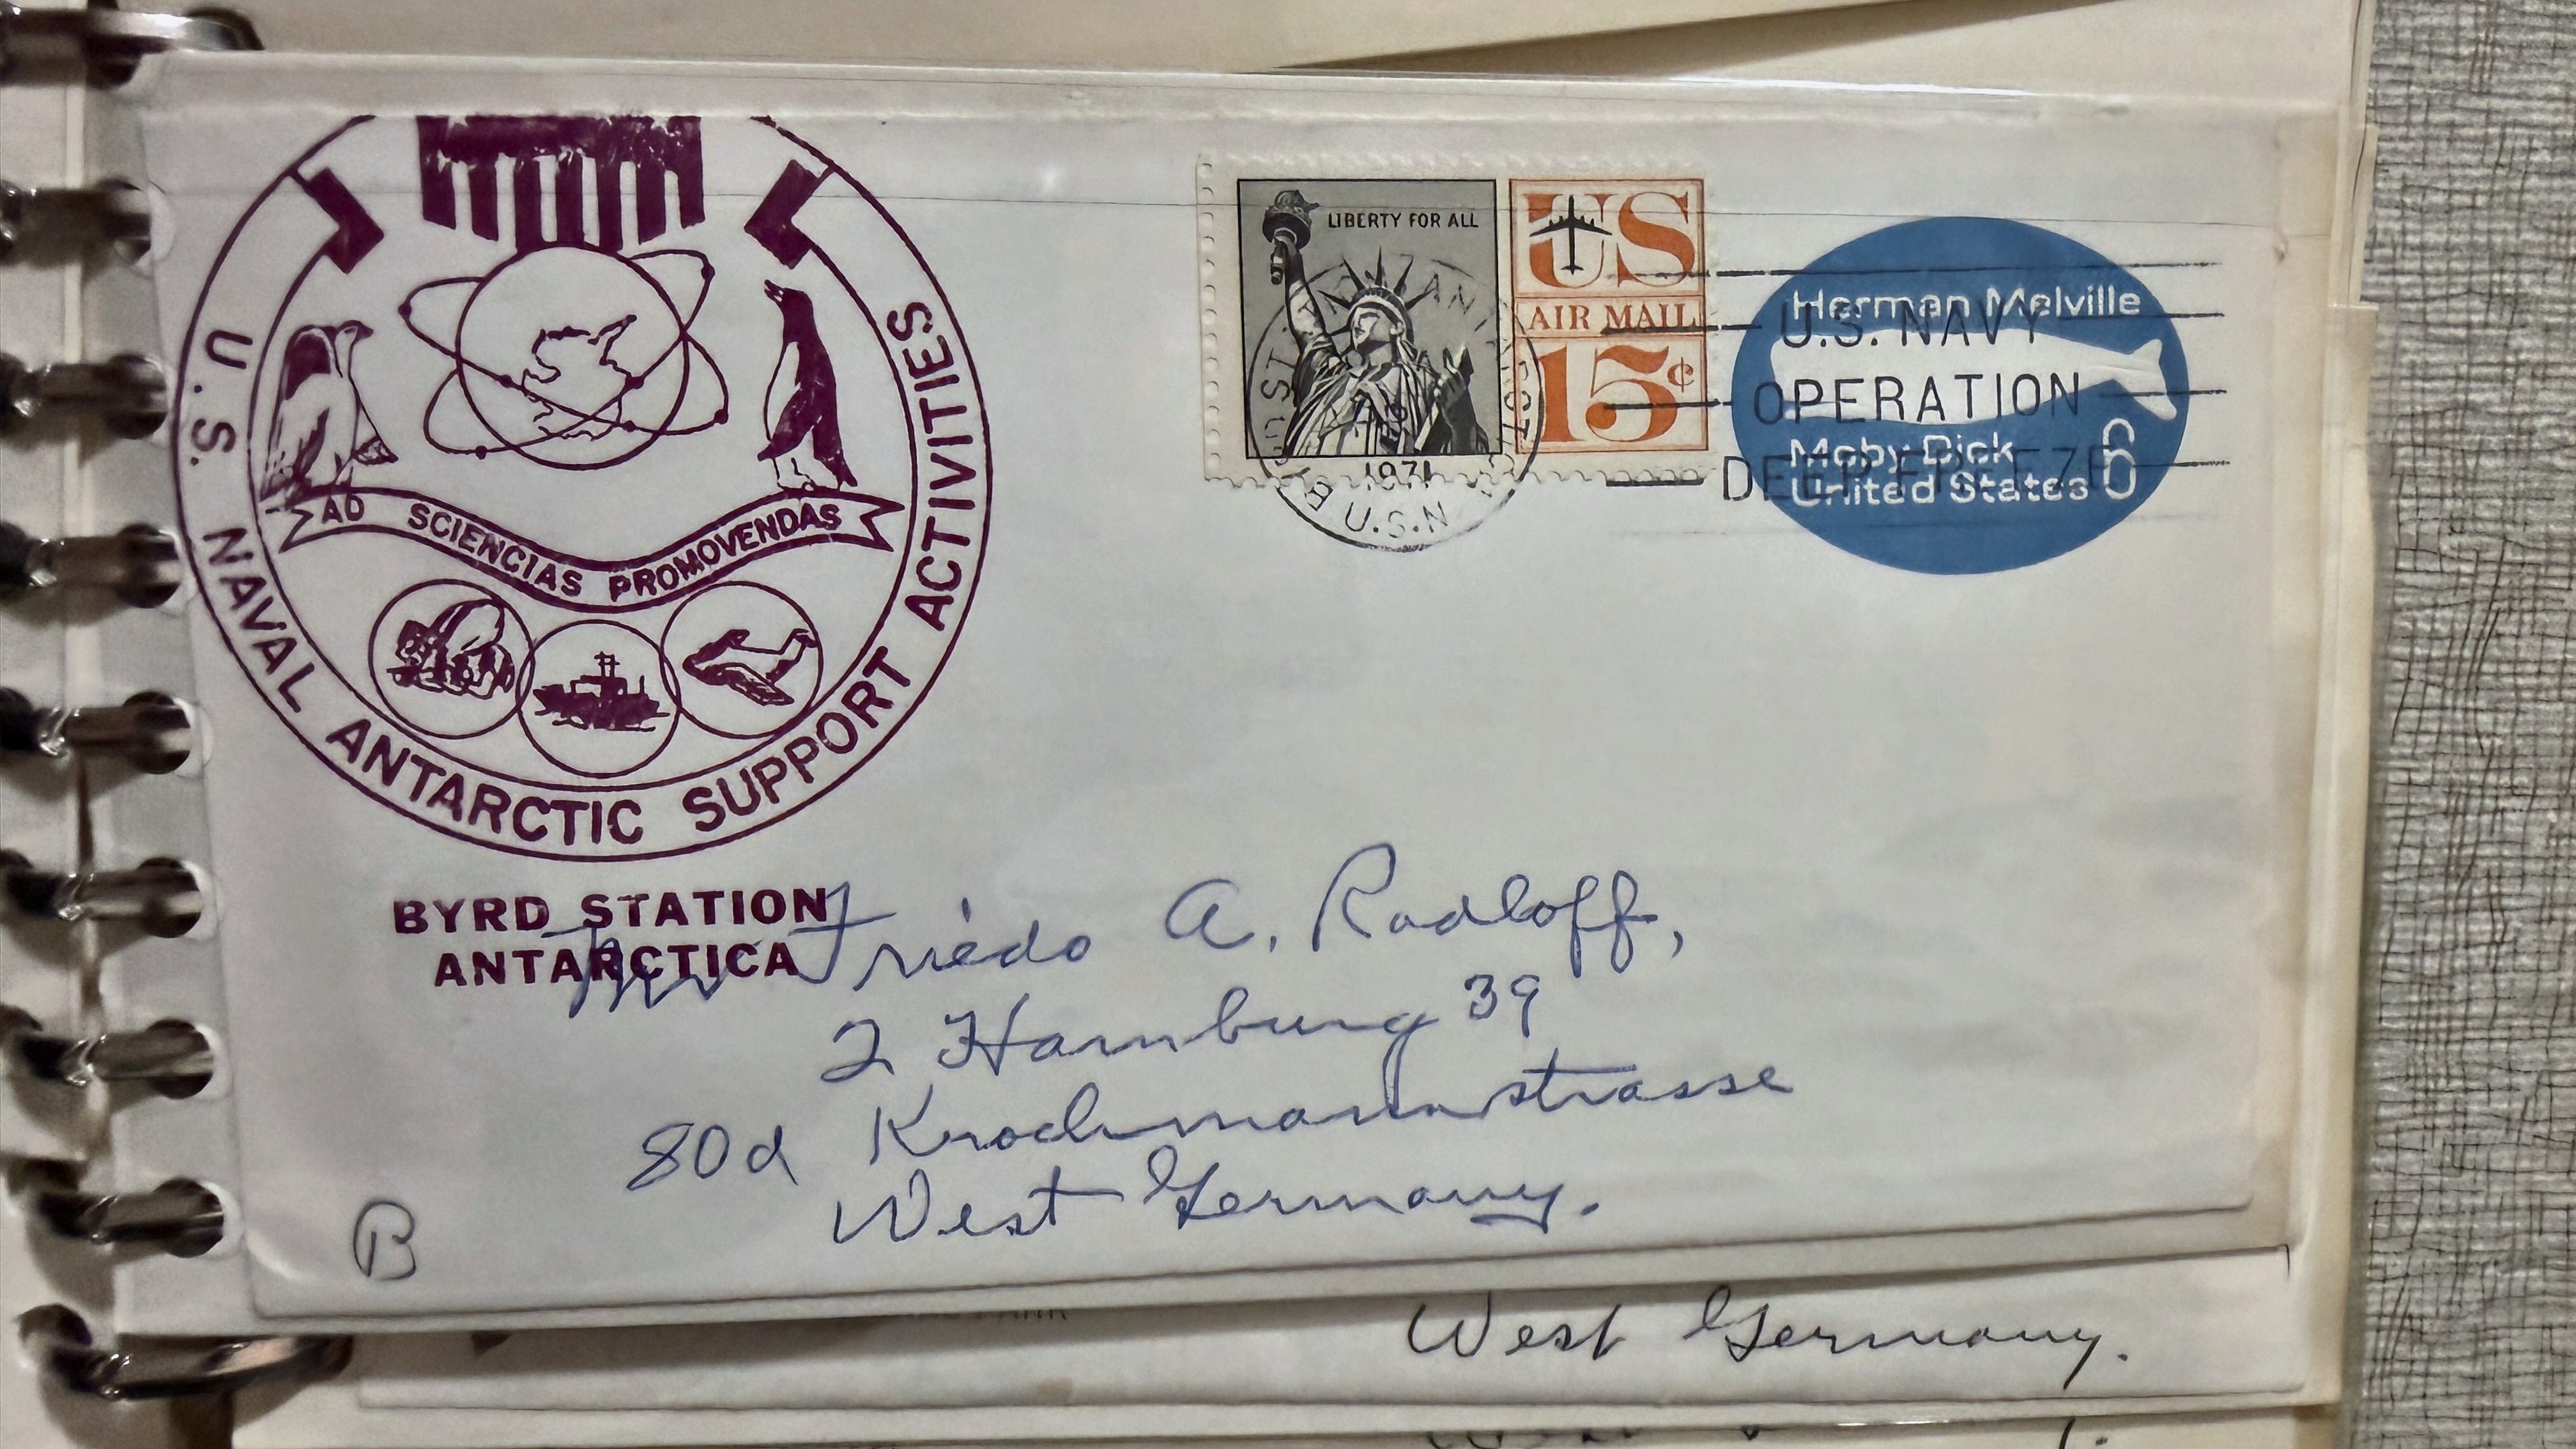 U.S. NAVAL ANTARCTIC SUPPORT ACTIVITIES
AD SCIENCIAS PROMOVENDAS
BYRD STATION
ANTARCTICA
LIBERTY FOR ALL
US
AIR MAIL
15¢
1971
U.S.N
Herman Melville
Moby Dick
United States 6
U.S. NAVY
OPERATION
DEEP FREEZE
Mr Friedo A. Radloff,
2 Hamburg 39
80d Krochmannstrasse
West Germany.
B
West Germany.